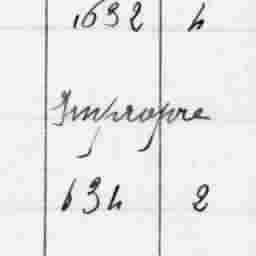 1632 4
Impropre
634 2